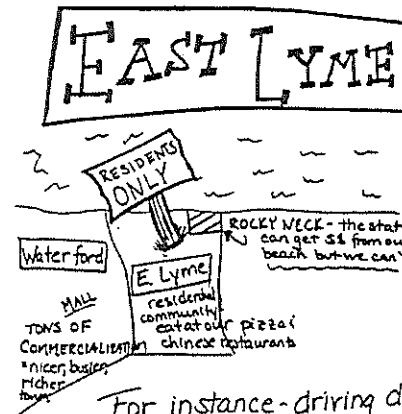 EAST LYME
RESIDENTS
ONLY
ROCKY NECK - the stat
can get $$ from ou
beach but we can'
Waterford
E. Lyme
residential
community
eat at our pizza &
chinese restaurants
MALL
TONS OF
COMMERCIALIZATION
nicer, busier,
richer
town
For instance - driving d